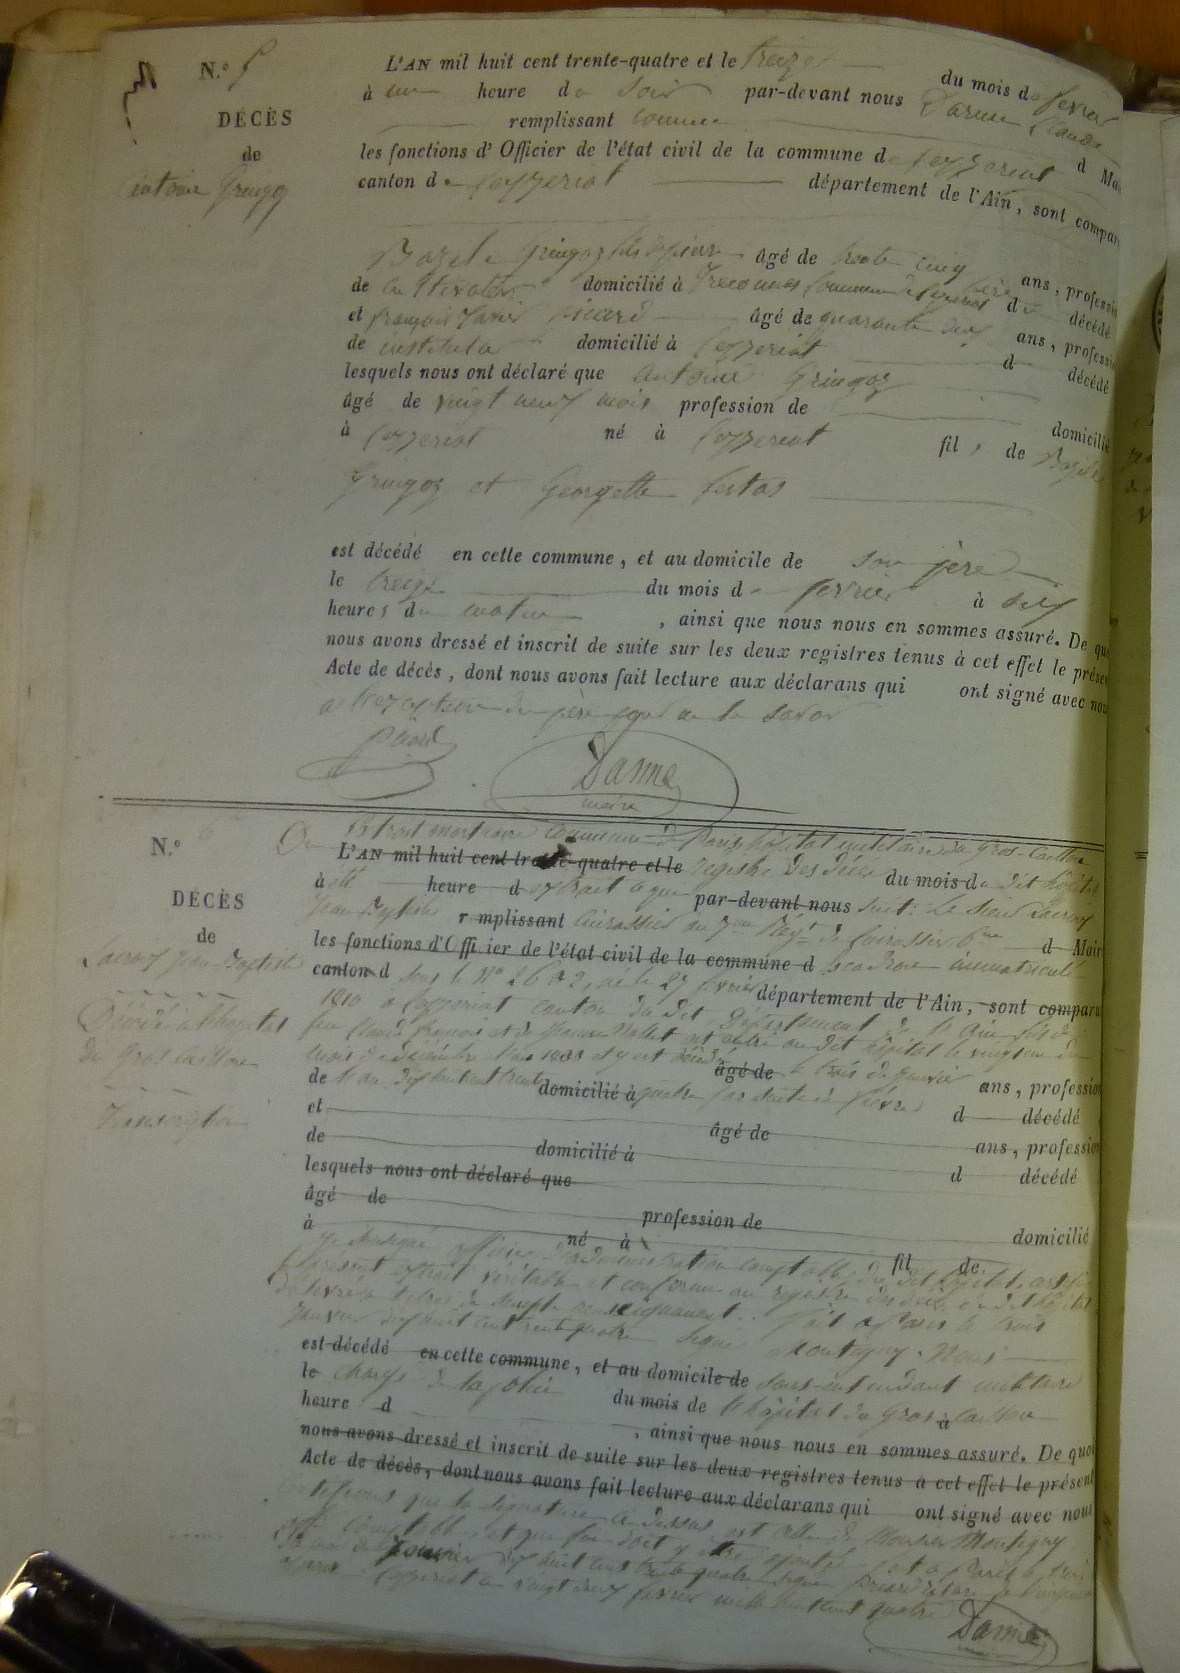 N.° 5
DÉCÈS
de
antoine Gringoz
L'AN mil huit cent trente-quatre et le treize du mois de fevrier
à une heure du Soir par-devant nous Darme Claude
remplissant comme
les fonctions d'Officier de l'état civil de la commune de Ceyzeriat d Mai
canton de Ceyzeriat département de l'Ain, sont compar
Bazile Gringoz âgé de trente cinq ans, professio
de domicilié à commune de Ceyzeriat décédé
et françois Xavier Picard âgé de quarante deux ans, professi
de instituteur domicilié à Ceyzeriat d décédé
lesquels nous ont déclaré que antoine Gringoz
âgé de vingt neuf mois profession de domicilié
à Ceyzeriat né à Ceyzeriat fils de Bazile
Gringoz et Georgette
est décédé en cette commune, et au domicile de son père
le treize du mois de fevrier à
heures du matin, ainsi que nous nous en sommes assuré. De qu
nous avons dressé et inscrit de suite sur les deux registres tenus à cet effet le présen
Acte de décès, dont nous avons fait lecture aux déclarans qui ont signé avec nou
père
Picard
Darme
maire
N.° 6
DÉCÈS
de
Jean Baptiste
Décédé à l'hopital
du Gros Caillou
Transcription
Extrait mortuaire Commune de Paris hôpital militaire du Gros-Caillou
L'AN mil huit cent trente-quatre et le registre des décès du mois du dit hôpital
à été heure d extrait ce qui par-devant nous suit: Le Sieur
Jean Baptiste remplissant cuirassier au 7me Régt de Cuirassiers 6me
les fonctions d'Officier de l'état civil de la commune d escadron immatriculé d Mair
canton d sous le N° né le 27 fevrier département de l'Ain, sont comparu
1810 à Ceyzeriat canton du dit Département de l'Ain fils de
feu et de est entré au dit hôpital le vingt un du
mois de décembre l'an 1833 et y est décédé âgé de le trois de janvier ans, profession
de l'an dix huit cent trente domicilié à quatre par suite de fièvre d décédé
et âgé de ans, profession
de domicilié à d décédé
lesquels nous ont déclaré que
âgé de profession de domicilié
à né à fil de
officier d'administration comptable du dit hôpital certifie
le présent extrait véritable et conforme au registre des décès du dit hôpital
Délivré à titre de simple renseignement. Fait à Paris le trois
janvier dix huit cent trente quatre Signé Montigny. Nous
est décédé en cette commune, et au domicile de sous-intendant militaire
le chargé de la police du mois de l'hôpital du Gros à Caillou
heure d, ainsi que nous nous en sommes assuré. De quoi
nous avons dressé et inscrit de suite sur les deux registres tenus à cet effet le présent
Acte de décès, dont nous avons fait lecture aux déclarans qui ont signé avec nous
certifions que la signature ci dessus est celle de Monsieur Montigny
comptable et que foi doit y être ajoutée fait à Paris le trois
janvier dix huit cent trente quatre signé
Ceyzeriat le vingt deux fevrier mille huit cent quatre
Darme